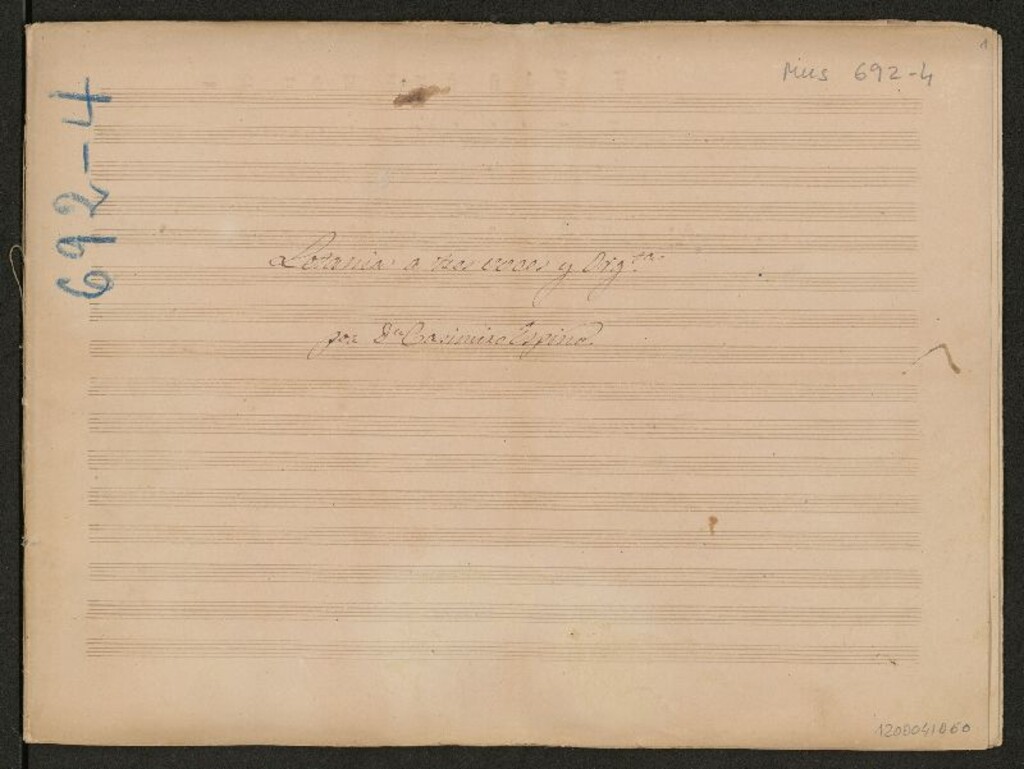 1
Mus 692-4
692-4
Letania a tres voces y Orq.ta
por Dn Casimiro Espino.
1200041060